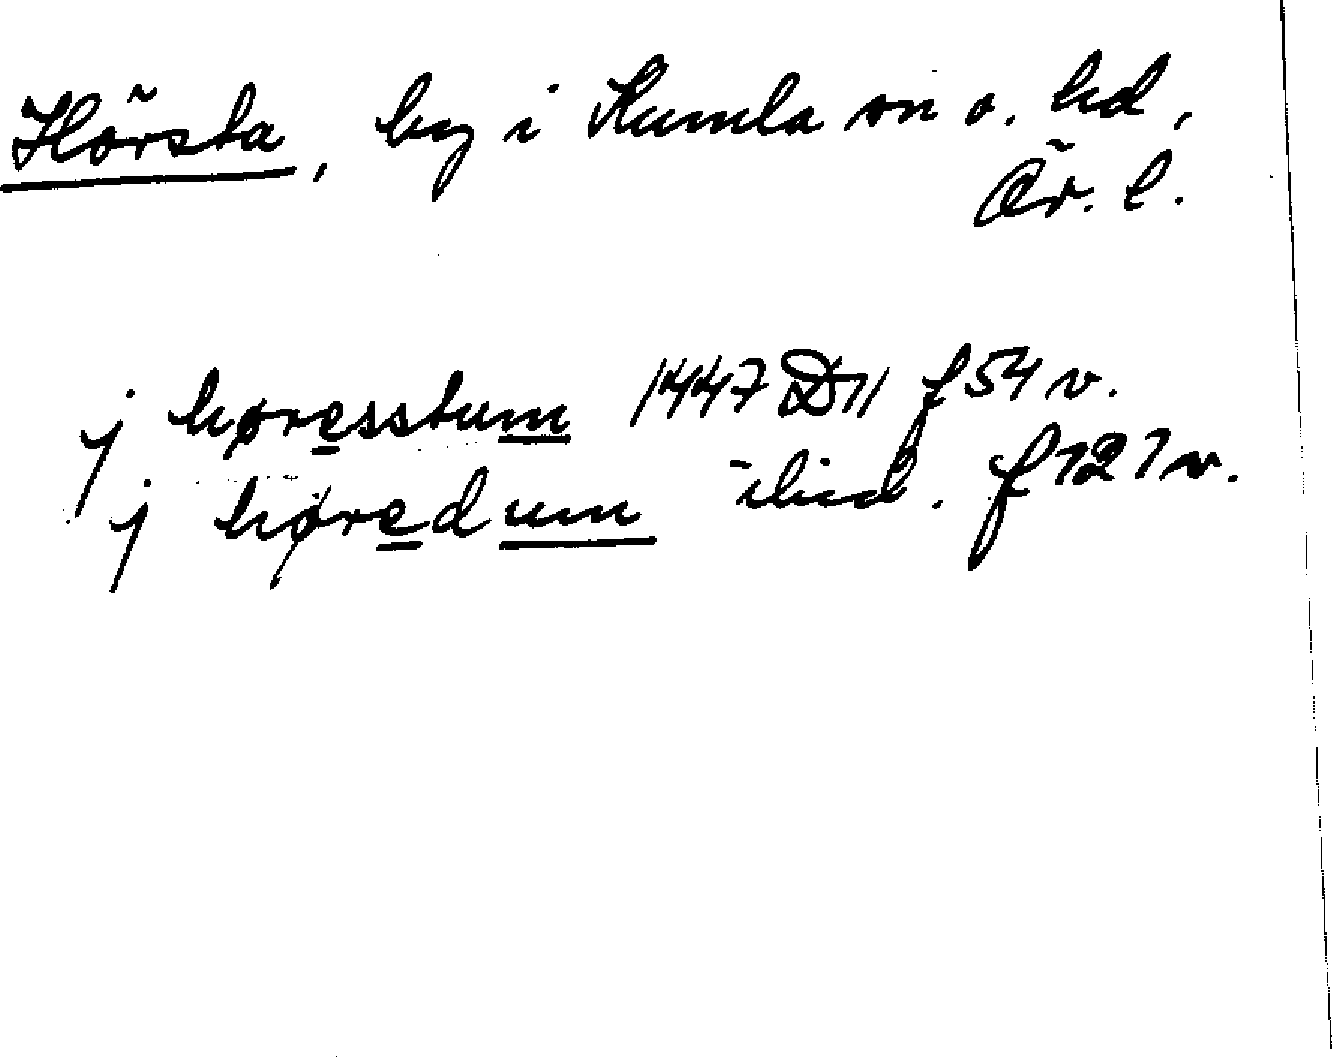 Hörsta, by i Kumla sn o. hd,
Ör. l.
j høresstum 1447 D11 f 54 v.
j høredum ibid. f 121 v.